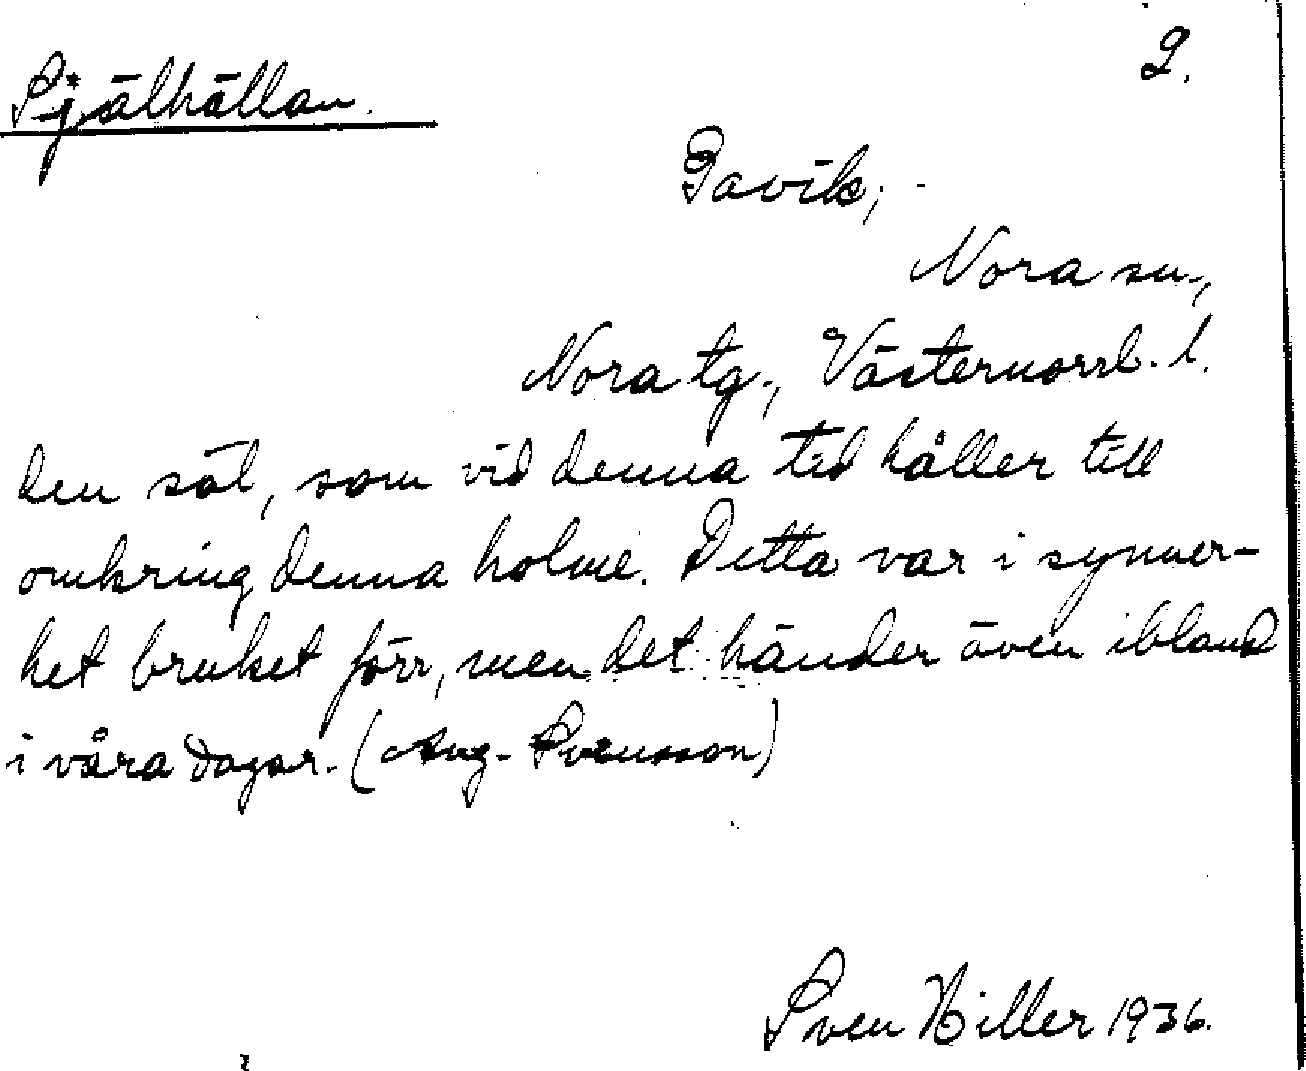 2.
Själhällan.
Gavik,
Nora sn.,
Nora tg., Västernorrl. l.
den säl, som vid denna tid håller till
omkring denna holme. Detta var i synner-
het bruket förr, men det händer även ibland
i våra dagar. (Aug. Svensson)
Sven Hiller 1936.